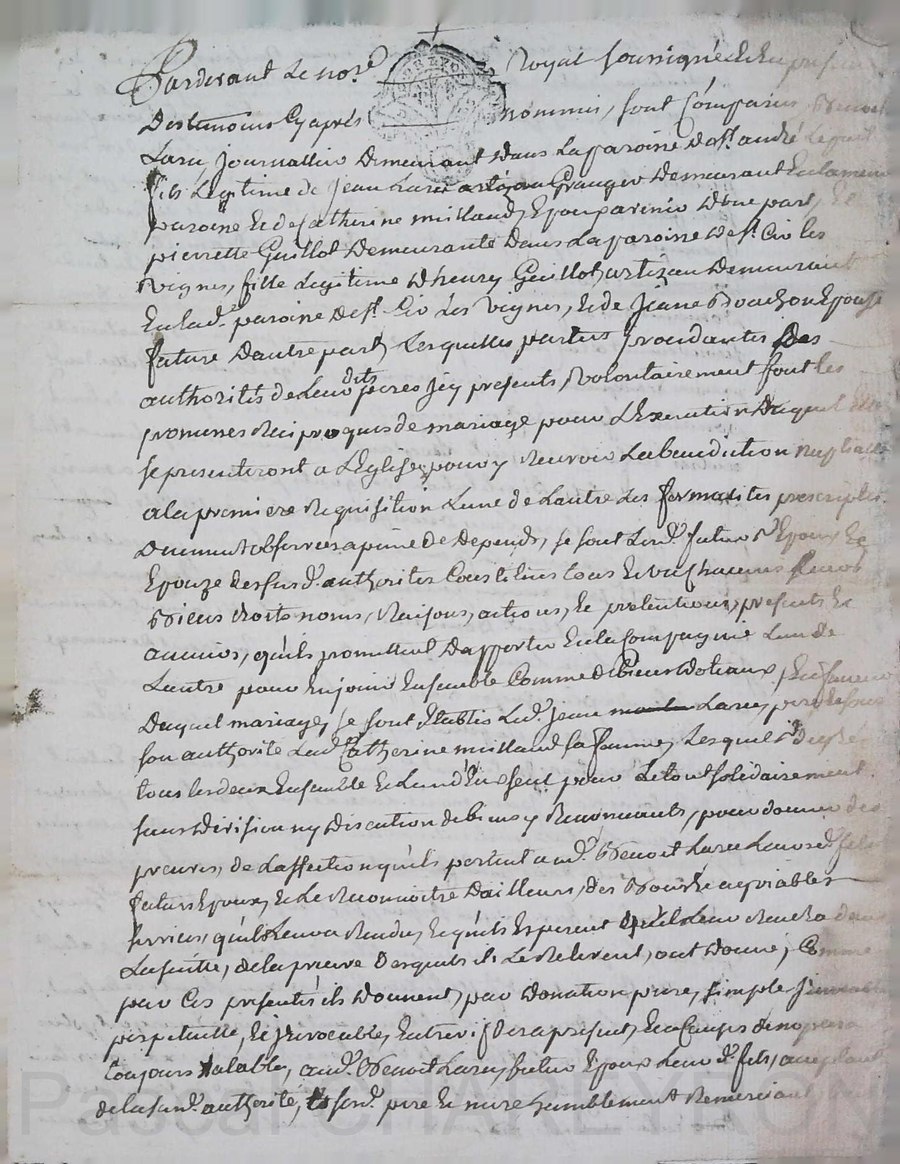 Pardevant Le no.re Royal soussigné Et En presence
Des temoins Cy aprés nommés, sont Comparus Benoit
Larue Journallier Demeurant Dans La paroisse De S.t andré Le puit
fils Légitime de Jean Larue artizan Granger Demeurant En la meme
paroisse Et de Catherine milland, Epoux avenir D'une part, Et
pierrette Guillot Demeurante Dans La paroisse De S.t Cir les
Vignes, fille Legitime D'henry Guillot, artizan Demeurant
En lad. paroisse De S.t Cir Les Vignes, Et de Jeane Bouchon Epouse
future D'autre part, Lesquelles parties procedantes Des
authorités de Leurs dits peres Icy presents, Volontairement font les
promesses Reciproques de mariage pour L'Execution Duquel Elles
se presenteront a L'Eglise, pour y Recevoir La benediction nuptialle
a la premiere Requisition L'une de L'autre Les formalités prescriptes
Duement observées a peine de Depends, se sont Lesd. futurs Epoux Et
Epouze des susd. authorités Constitués tous Et Un Chacuns Leurs
Biens Droits noms, Raisons, actions, Et pretentions, presents Et
avenirs, qu'ils promettent D'apporter En la Compagnie L'un De
L'autre pour En jouir Ensemble Comme De biens Dotaux, En faveur
Duquel mariage, se sont Etablis Led. Jean Larue, pere De sous
son authorité Lad. Catherine milland sa femme, Lesquels De gré
tous les deux Ensemble Et L'un d'Eux seul pour Le tout solidairement
sans Division ny Discution de biens y Renonceants, pour donner des
preuves, de L'affection qu'ils portent aud. Benoit Larue Leursd. fils
futur Epoux, Et Le Reconnoitre D'ailleurs, des Bons Et agréables
services, qu'il Leur a Rendus, Et qu'ils Esperent qu'il Leur Rendra dans
La suitte, de la preuve Desquels ils Le Relevent, ont Donné, Comme
par Ces presentes ils Donnent, par Donation pure, simple
perpetuelle, Et Irrevocable, Entre vifs Des a present, En a Temps
toujours Valable, aud. Benoit Larue, futur Epoux Leur d. fils, acceptant
de la susd. authorité, sesd. pere Et mere humblement Remerciant
Pascal CHAREYRON